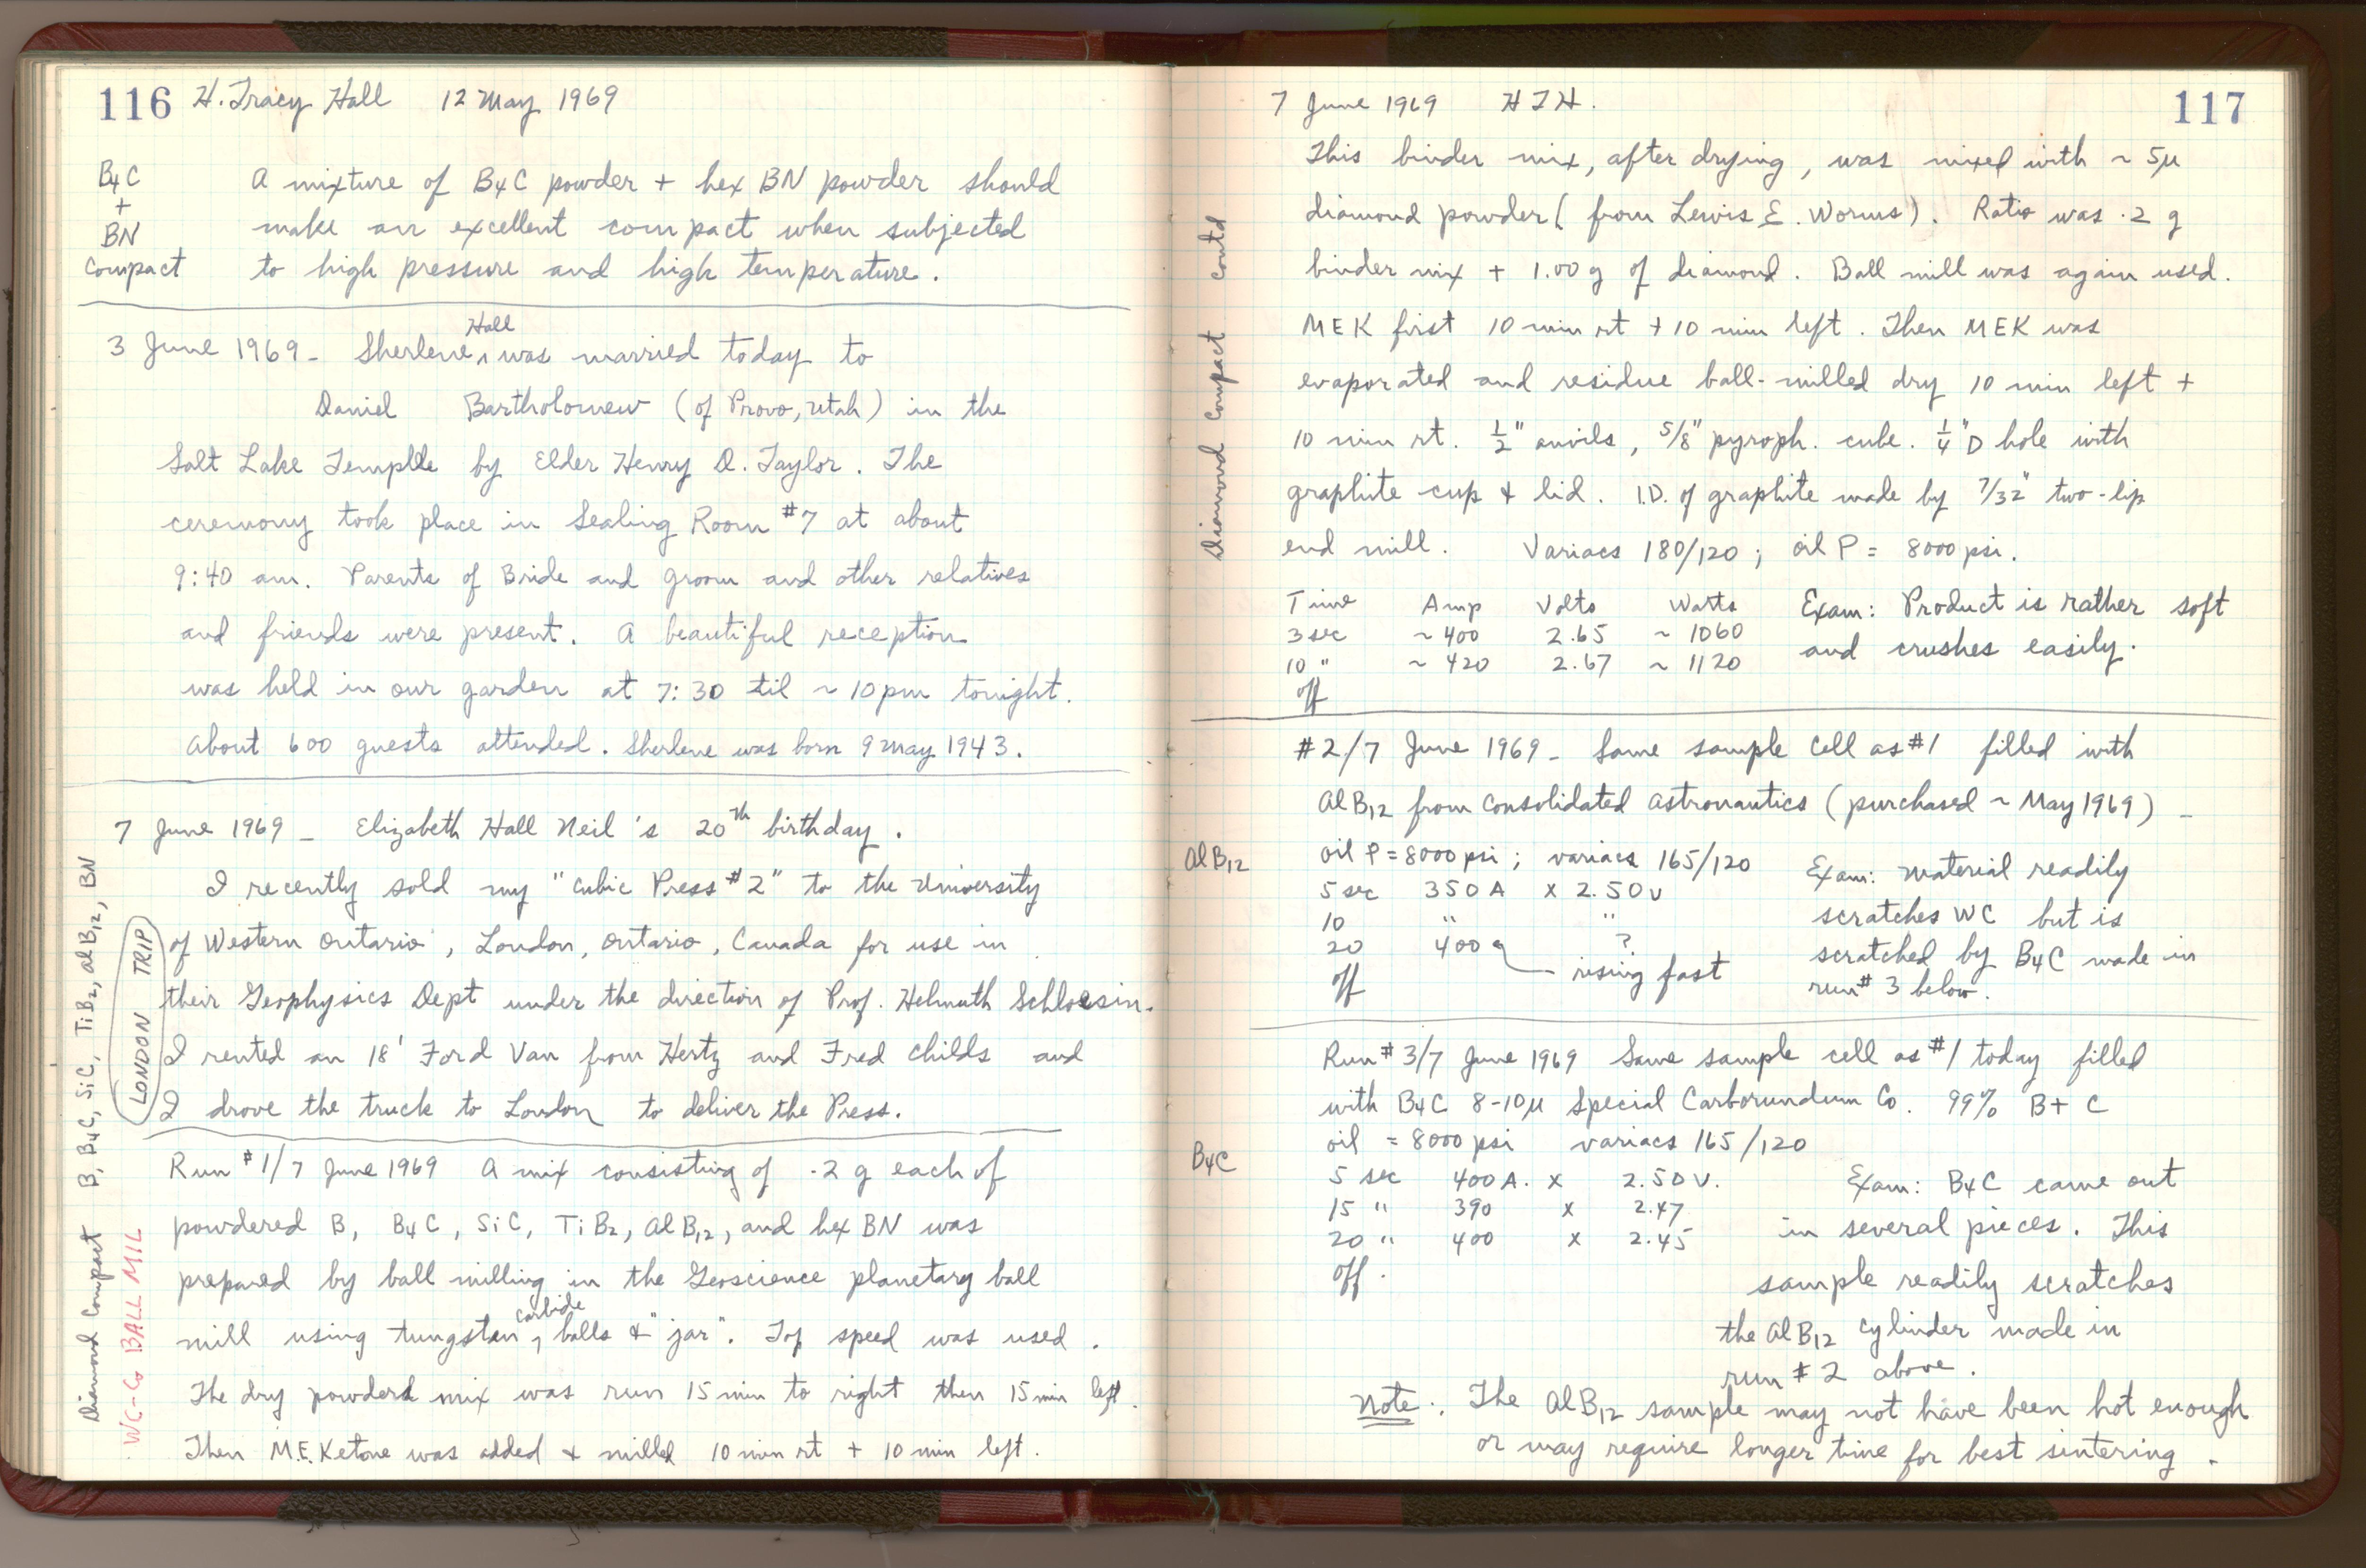 116 H. Tracy Hall 12 May 1969
B4C
+
BN
Compact
A mixture of B4C powder + hex BN powder should
make an excellent compact when subjected
to high pressure and high temperature.
3 June 1969 - Sherlene Hall was married today to
Daniel Bartholomew (of Provo, Utah) in the
Salt Lake Temple by Elder Henry D. Taylor. The
ceremony took place in Sealing Room #7 at about
9:40 am. Parents of Bride and groom and other relatives
and friends were present. A beautiful reception
was held in our garden at 7:30 til ~ 10 pm tonight.
About 600 guests attended. Sherlene was born 9 May 1943.
7 June 1969 - Elizabeth Hall Neil's 20th birthday.
LONDON TRIP
I recently sold my "Cubic Press #2" to the University
of Western Ontario, London, Ontario, Canada for use in
their Geophysics Dept under the direction of Prof. Helmuth Schloessin.
I rented an 18' Ford Van from Hertz and Fred Childs and
I drove the truck to London to deliver the Press.
Diamond Compact B, B4C, SiC, TiB2, AlB12, BN
WC-Co BALL MIL
Run #1/7 June 1969 A mix consisting of .2 g each of
powdered B, B4C, SiC, TiB2, AlB12, and hex BN was
prepared by ball milling in the Geoscience planetary ball
mill using tungsten carbide balls & "jar". Top speed was used.
The dry powderd mix was run 15 min to right then 15 min left.
Then M.E. Ketone was added & milled 10 min rt + 10 min left.
7 June 1969 HTH. 117
Diamond Compact contd
This binder mix, after drying, was mixed with ~ 5μ
diamond powder (from Lewis E. Worms). Ratio was .2 g
binder mix + 1.00 g of diamond. Ball mill was again used.
MEK first 10 min rt + 10 min left. Then MEK was
evaporated and residue ball-milled dry 10 min left +
10 min rt. 1/2" anvils, 5/8" pyroph. cube. 1/4" D hole with
graphite cup & lid. I.D. of graphite made by 7/32" two-lip
end mill. Variacs 180/120; oil P = 8000 psi.
Time Amp Volts Watts Exam: Product is rather soft
3 sec ~400 2.65 ~ 1060 and crushes easily.
10 " ~ 420 2.67 ~ 1120
off
#2/7 June 1969 - Same sample cell as #1 filled with
AlB12 from Consolidated Astronautics (purchased ~ May 1969) -
AlB12
oil P = 8000 psi; variacs 165/120 Exam: Material readily
5 sec 350 A x 2.50 v scratches WC but is
10 " " scratched by B4C made in
20 400 ? run #3 below.
off rising fast
Run #3/7 June 1969 Same sample cell as #1 today filled
with B4C 8-10μ Special Carborundum Co. 99% B + C
B4C
oil = 8000 psi variacs 165/120
5 sec 400 A. x 2.50 V. Exam: B4C came out
15 " 390 x 2.47 in several pieces. This
20 " 400 x 2.45
off.
sample readily scratches
the AlB12 cylinder made in
run #2 above.
Note: The AlB12 sample may not have been hot enough
or may require longer time for best sintering.